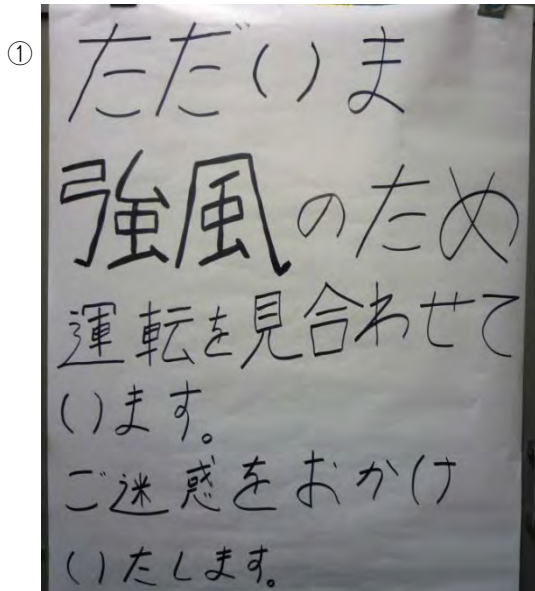 ①
ただいま
強風のため
運転を見合わせて
います。
ご迷惑をおかけ
いたします。